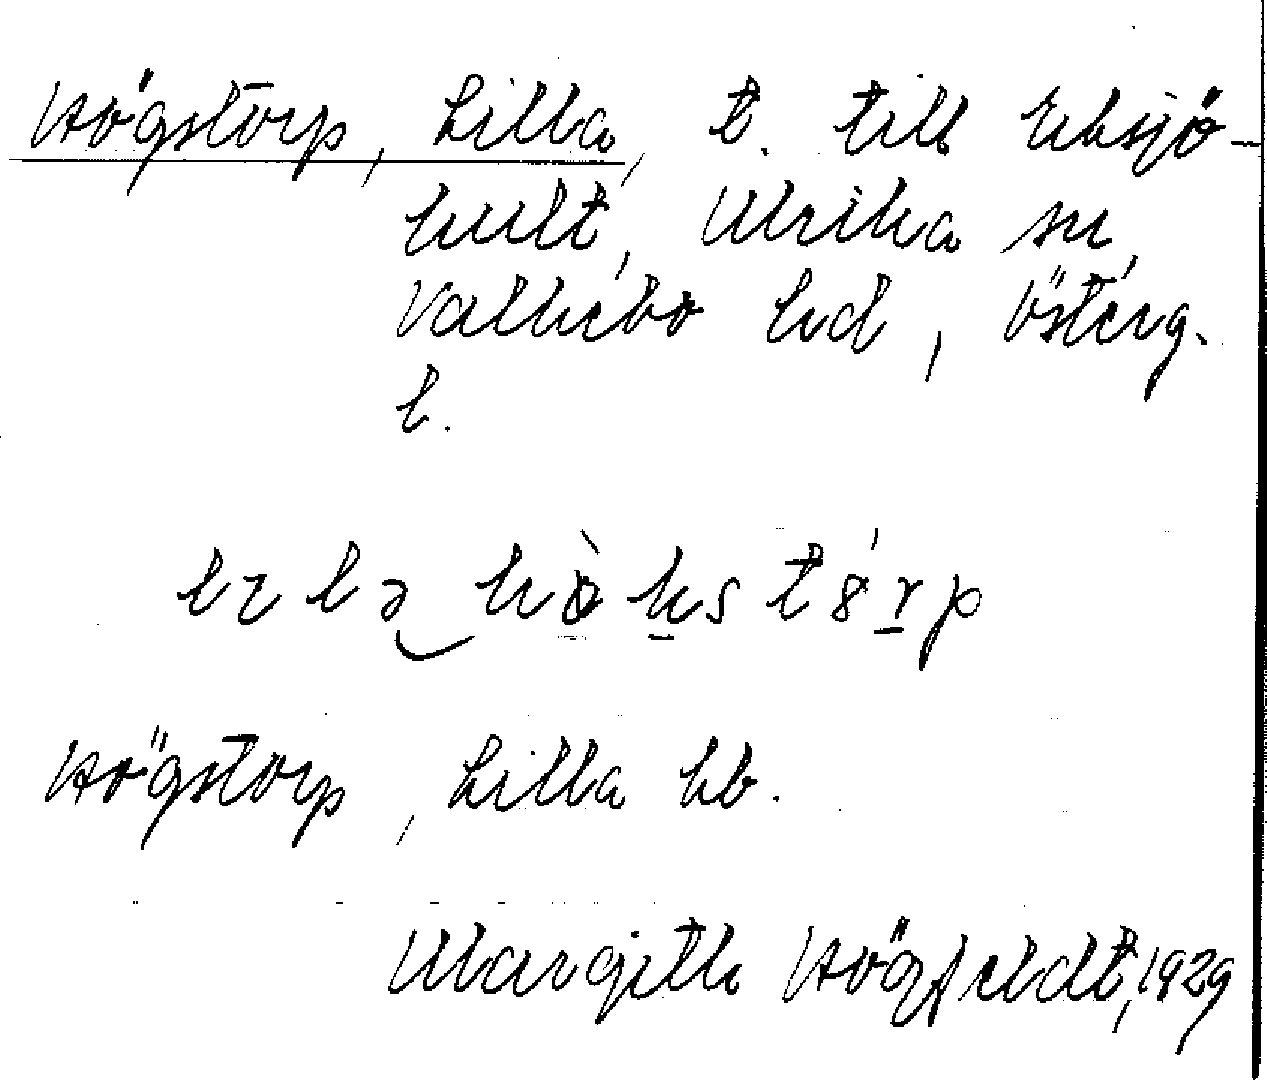 Högstorp, Lilla, t. till Eksjö-
hult, Ulrika sn,
Valkebo hd, Österg.
l.
Högstorp, Lilla kb.
Margith Högfeldt, 1929